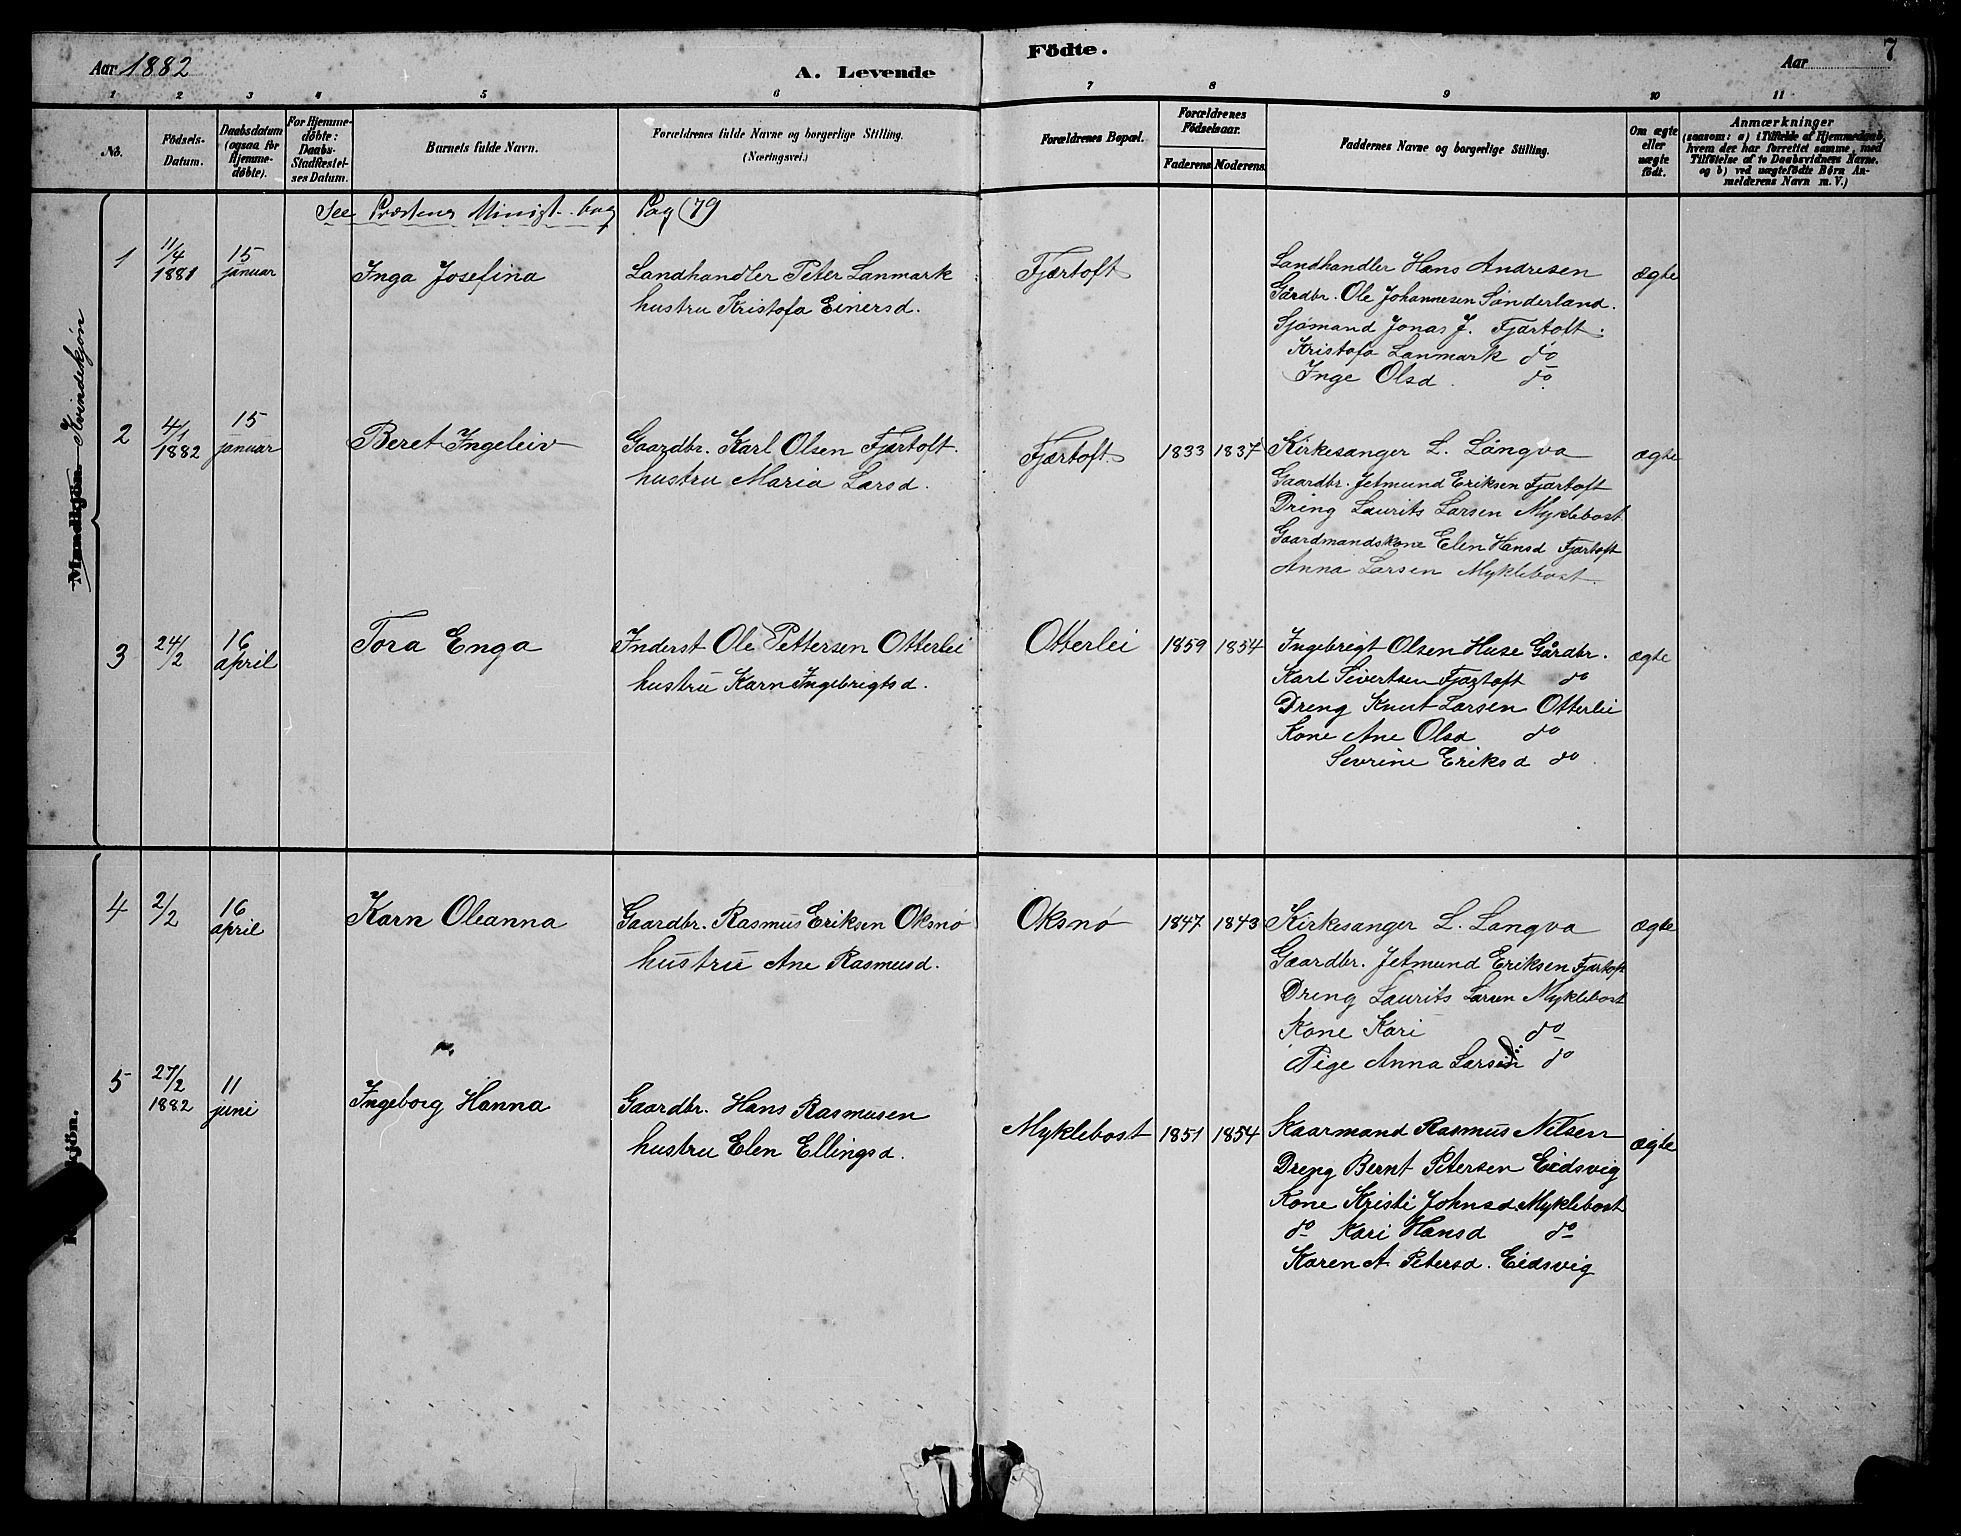 Aar 1882
A. Levende
Födte.
Aar
7
1 2 3 4 5 6 7 8 9 10 11
No.
Födsels-Datum.
Daabsdatum (ogsaa for Hjemme-döbte).
For Hjemme-döbte: Daabs-Stadfæstel-ses Datum.
Barnets fulde Navn.
Forældrenes fulde Navne og borgerlige Stilling. (Næringsvei.)
Forældrenes Bopæl.
Forældrenes Födselsaar.
Faderens Moderens
Faddernes Navne og borgerlige Stilling.
Om ægte eller uægte födt.
Anmærkninger
(saasom: a) i Tilfælde af Hjemmedaab,
hvem der har forrettet samme, med
Tilföielse af to Daabsvidners Navne,
og b) ved uægtefödte Börn An-
melderens Navn m. V.)
Mandkjön Kvindekjön
See Præstens Minist. bog Pag 79
1
11/4 1881
15 januar
Inga Josefina
Landhandler Peter Lanmark
hustru Kristofa Einersd.
Fjærtoft
Landhandler Hans Andresen
Gårdbr. Ole Johannesen Sønderland.
Sjømand Jonas J. Fjærtoft.
Kristofa Lanmark do
Inge Olsd. do
ægte
2
4/1 1882
15 januar
Beret Ingeleiv
Gaardbr. Karl Olsen Fjærtoft.
hustru Maria Larsd.
Fjærtoft
1833 1837
Kirkesanger L. Langva
Gaardbr. Jetmund Eriksen Fjærtoft
Dreng Laurits Larsen Myklebost
Gaardmandskone Elen Hansd Fjærtoft
Anna Larsen Myklebost.
ægte
3
24/2
16 april
Tora Enga
Inderst Ole Pettersen Otterlei
hustru Karn Ingebrigtsd.
Otterlei
1859 1854
Ingebrigt Olsen Huse Gårdbr.
Karl Sivertsen Fjærtoft do
Dreng Knut Larsen Otterlei
Kone Ane Olsd do
Sevrine Eriksd do.
ægte
kjön.
4
2/2
16 april
Karn Oleanna
Gaardbr. Rasmus Eriksen Oksnø
hustru Ane Rasmusd.
Oksnø
1847 1843
Kirkesanger L. Langva
Gaardbr. Jetmund Eriksen Fjærtoft
Dreng Laurits Larsen Myklebost
Kone Kari do
Pige Anna Larsd: do
ægte
5
27/2 1882
11 juni
Ingeborg Hanna
Gaardbr. Hans Rasmusen
hustru Elen Ellingsd.
Myklebost
1851 1854
Kaarmand Rasmus Nilsen
Dreng Bernt Petersen Eidsvig
Kone Kristi Johnsd. Myklebost
do Kari Hansd do
Karen A Petersd. Eidsvig
ægte